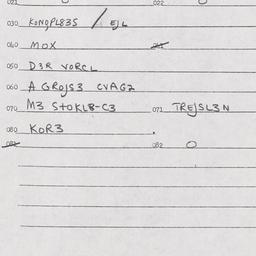 021 022
030 KONQPL83S / EJL
040 MOX
050 D3R VORCL
060 A GROJS3 CVAG2
070 M3 STOKL8-C3 071 TREJSL3N
080 KOR3
082 O